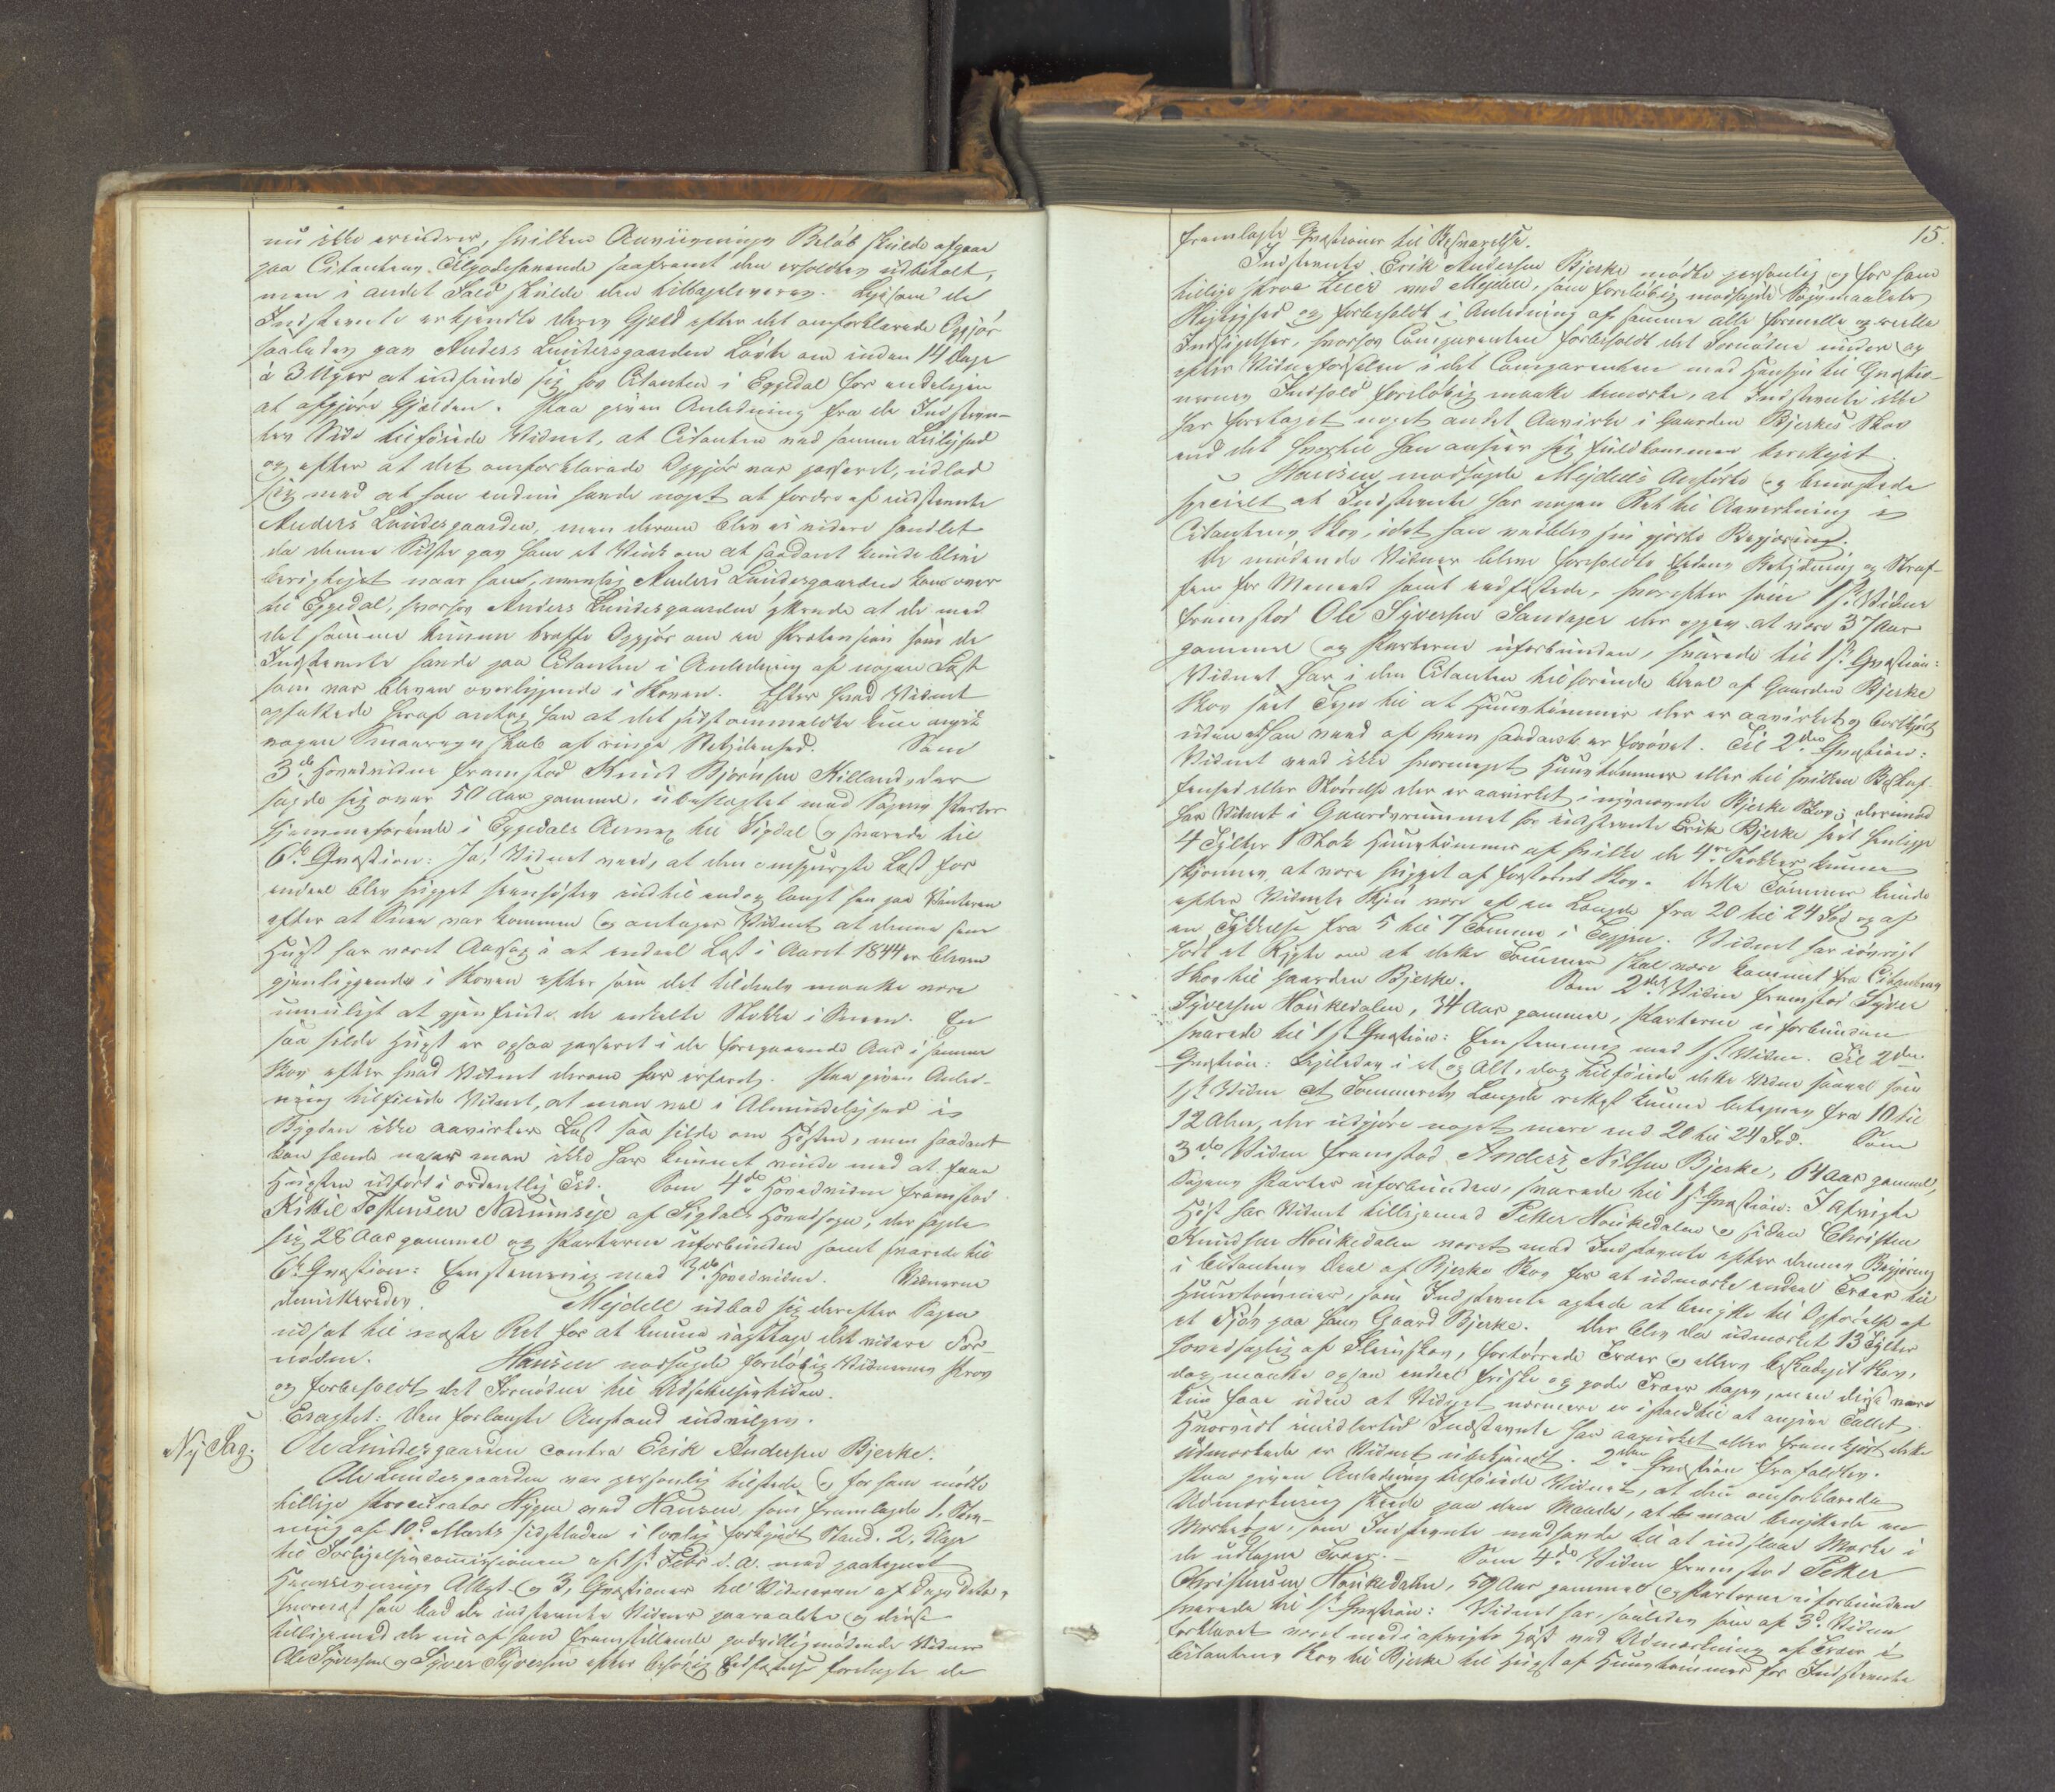 nu ikke erindrer, hvilken Anviisnings Beløb skulde afgaae
paa Citantens Tilgodehavende saafremt den erholdtes udbetalt,
men i andet Fald skulde den tilbageleveres. Ligesom de
Indstevnte erkjendte deres Gjæld efter det omforklarede Opgjør
saaledes gav Anders Lindersgaarden Løvte om inden 14 Dage
à 3 Uger at indfinde sig hos Citanten i Eggedal for endeligen
at afgjøre Gjælden. Paa given Anledning fra de Indstevn-
tes Side tilføiede Vidnet, at Citanten ved samme Leilighed
og efter at det omforklarede Opgjør var passeret, udlod
sig med at han endnu havde noget at fordre af indstevnte
Anders Lindesgaarden, men derom blev ei videre handlet
da denne Sidste gav ham et Vink om at saadant kunde blive
berigtiget naar han, nemlig Anders Lindesgaarden kom over
til Eggedal, hvorhos Anders Lindesgaarden yttrede at de med
det samme kunne træffe Opgjør om en Prætension som de
Indstevnte havde paa Citanten i Anledning af nogen Last
som var bleven overliggende i Skoven. Efter hvad Vidnet
opfattede heraf antog han at det sidstommeldte kun angik
nogen Smaaregnskab af ringe Betydenhed. Som
3de Hovedvidne fremstod Knud Bjørnsen Killand, der
sagde sig over 50 Aar gammel, ubeslægtet med Sagens Parter
hjemmehørende i Eggedals Annex til Sigdal og svarede til
6te Qvæstion: Ja! Vidnet veed, at den omspurgte Last for
endeel blev hugget seenhøstes indtil endog langt hen paa Vinteren
efter at Sneen var kommen og antager Vidnet at denne seene
Hugst har været Aarsag i at endeel Last i Aaret 1844 er bleven
gjenliggende i Skoven efter som det tildeels maatte være
umuligt at gjenfinde de enkelte Stokke i Sneen. En
saa silde Hugst er ogsaa passeret i de foregaaende Aar i samme
Skov efter hvad Vidnet derom har erfaret. Paa given Anled-
ning tilføiede Vidnet, at man vel i Almindelighed i
Bygden ikke aavirker Last saa silde om Høsten, men saadant
kan hænde naar man ikke har kunnet vinde med at faae
Hugsten udført i ordentlig Tid. Som 4de Hovedvidne fremstod
Kittil Tostensen Narumseje af Sigdals Hovedsogn, der sagde
sig 28 Aar gammel og Parterne uforbunden samt svarede til
6te Qvæstion: Eenstemmig med 3de Hovedvidne. Vidnerne
dimitteredes. Mejdell udbad sig derefter Sagen
udsat til næste Ret for at kunne iagttage det videre For-
nødne. Hansen modsagde foreløbig Vidnernes Prov
og forbeholdt det Fornødne til Udsættelsestiden.
Eragtet: Den forlangte Anstand indvilges.
Ny Sag. Ole Lindesgaarden contra Erik Andersen Bjerke.
Ole Lindesgaarden var personlig tilstede og for ham mødte
tillige Procurator Hygen ved Hansen, som fremlagde 1, Stev-
ning af 10de Marts sidstleden i lovlig forkyndt Stand. 2, Klage
til Forligelsescommissionen af 1ste Febr d. A. med paategnet
Henvisnings Attest og 3, Qvæstioner til Vidnerne af Dags Dato,
hvornæst han bad de indstevnte Vidner paaraabte og disse
tilligemed de nu af ham fremstillende godvilligmødende Vidner
Ole Syversen og Syver Syversen efter behørig Edfæstelse forelagte de
15.
fremlagte Qvæstioner til Besvarelse.
Indstevnte Erik Andersen Bjerke mødte personlig og for ham
tillige Procurator med Mejdell, som foreløbig modsagde Søgsmaalets
Rigtighed og forbeholdt i Anledning af samme alle formelle og reelle
Indsigelser, hvorhos Comparenten forbeholdt det Fornødne under og
efter Vidneførselen i det Comparenten med Hensyn til Qvæstio-
nernes Indhold foreløbig maatte bemærke, at Indstevnte ikke
har foretaget noget andet Aavirke i Gaarden Bjerkes Skov
end det hvortil han anseer sig fuldkommen berettiget.
Hansen modsagde Mejdells Anførte og benegtede
specielt at Indstevnte har nogen Ret til Aavirkning i
Citantens Skov, idet han vedblev sin gjorte Begjæring.
De mødende Vidner bleve foreholdte Edens Betydning og Straf-
fen for Meneed samt eedfæstede, hvorefter som 1ste Vidne
fremstod Ole Syversen Sandager der opgav at være 37 Aar
gammel og Parterne uforbunden, svarede til 1ste Qvæstion:
Vidnet har i den Citanten tilhørende Deel af Gaarden Bjerke
Skov seet Tegn til at Huustømmer der er aavirket og bortkjørt
uden at han veed af hvem saadant er forøvet. Til 2den Qvæstion:
Vidnet veed ikke hvormeget Huustømmer eller til hvilken Beskaf-
fenhed eller Størrelse der er aavirket i ovennævnte Bjerke Skov; derimod
har Vidnet i Gaardsrummet hos Indstevnte Erik Bjerke seet henligge
4 Tylter 1 Stok Huustømmer af hvilke de 4re Stokker kunne
skjønnes, at være hugget af fortørret Skov. Dette Tømmer kunde
efter Vidnets Skjøn være af en Længde fra 20 til 24 Fod og af
en Tykkelse fra 5 til 7 Tomme i Toppen. Vidnet har iøvrigt
hørt et Rygte om at dette Tømmer skal være kommet fra Citantens
Skov til Gaarden Bjerke. Som 2det Vidne fremstod Syver
Syversen Houkedalen, 34 Aar gammel, Parterne uforbunden
svarede til 1ste Qvæstion: Eenstemmig med 1ste Vidne. Til 2den
Qvæstion: Ligeledes i et og Alt, dog tilføiede dette Vidne saavel som
1ste Vidne at Tømmerets Længde rettest kunne betegnes fra 10 til
12 Alen, der udgjøre noget mere end 20 til 24 Fod. Som
3die Vidne fremstod Anders Nilsen Bjerke, 64 Aar gammel,
Sagens Parter uforbunden, svarede til 1ste Qvæstion: I afvigte
Høst har Vidnet tilligemed Petter Houkedalen og siden Christen
Knudsen Houkedalen været med Indstevnte efter dennes Begjæring
i Citantens Deel af Bjerke Skov for at udmærke endeel Træer til
Huustømmer, som Indstevnte agtede at benytte til Opførelse af
et Fjøs paa hans Gaard Bjerke. Der blev da udmærket 13 Tylter
hovedsaglig af Steinskov, fortørrede Træer og ellers beskadiget Skov,
dog maatte ogsaa endeel friske og gode Træer tages, men disse vare
kun faae uden at Vidnet nærmere er istand til at angive Tallet.
Hvorvidt imidlertid Indstevnte har aavirket eller fremkjørt dette
Udmærkede er Vidnet ubekjendt. 2den Qvæstion frafaldtes.
Paa given Anledning tilføiede Vidnet, at den omforklarede
Udmærkning skede paa den Maade, at man benyttede en
Mærkeøxe, som Indstevnte medhavde til at indslaae Mærke i
de udtagne Træer. — Som 4de Vidne fremstod Petter
Christensen Houkedalen, 59 Aar gammel og Parterne uforbunden
svarede til 1ste Qvæstion: Vidnet har, saaledes som af 3die Vidne
forklaret været med i afvigte Høst ved Udmærkning af Træer i
Citantens Skov til Bjerke til Hugst af Huustømmer for Indstevnte